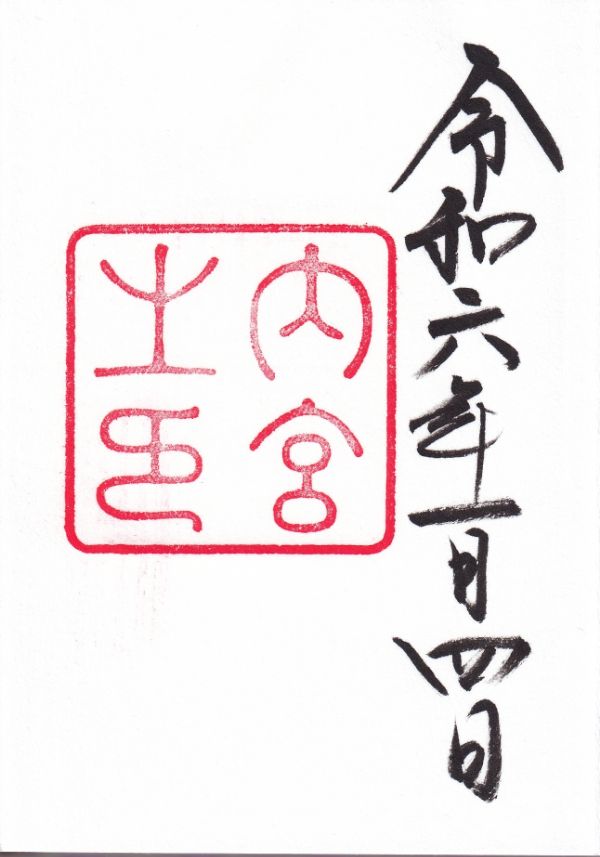 令和六年一月四日
内宮
之印